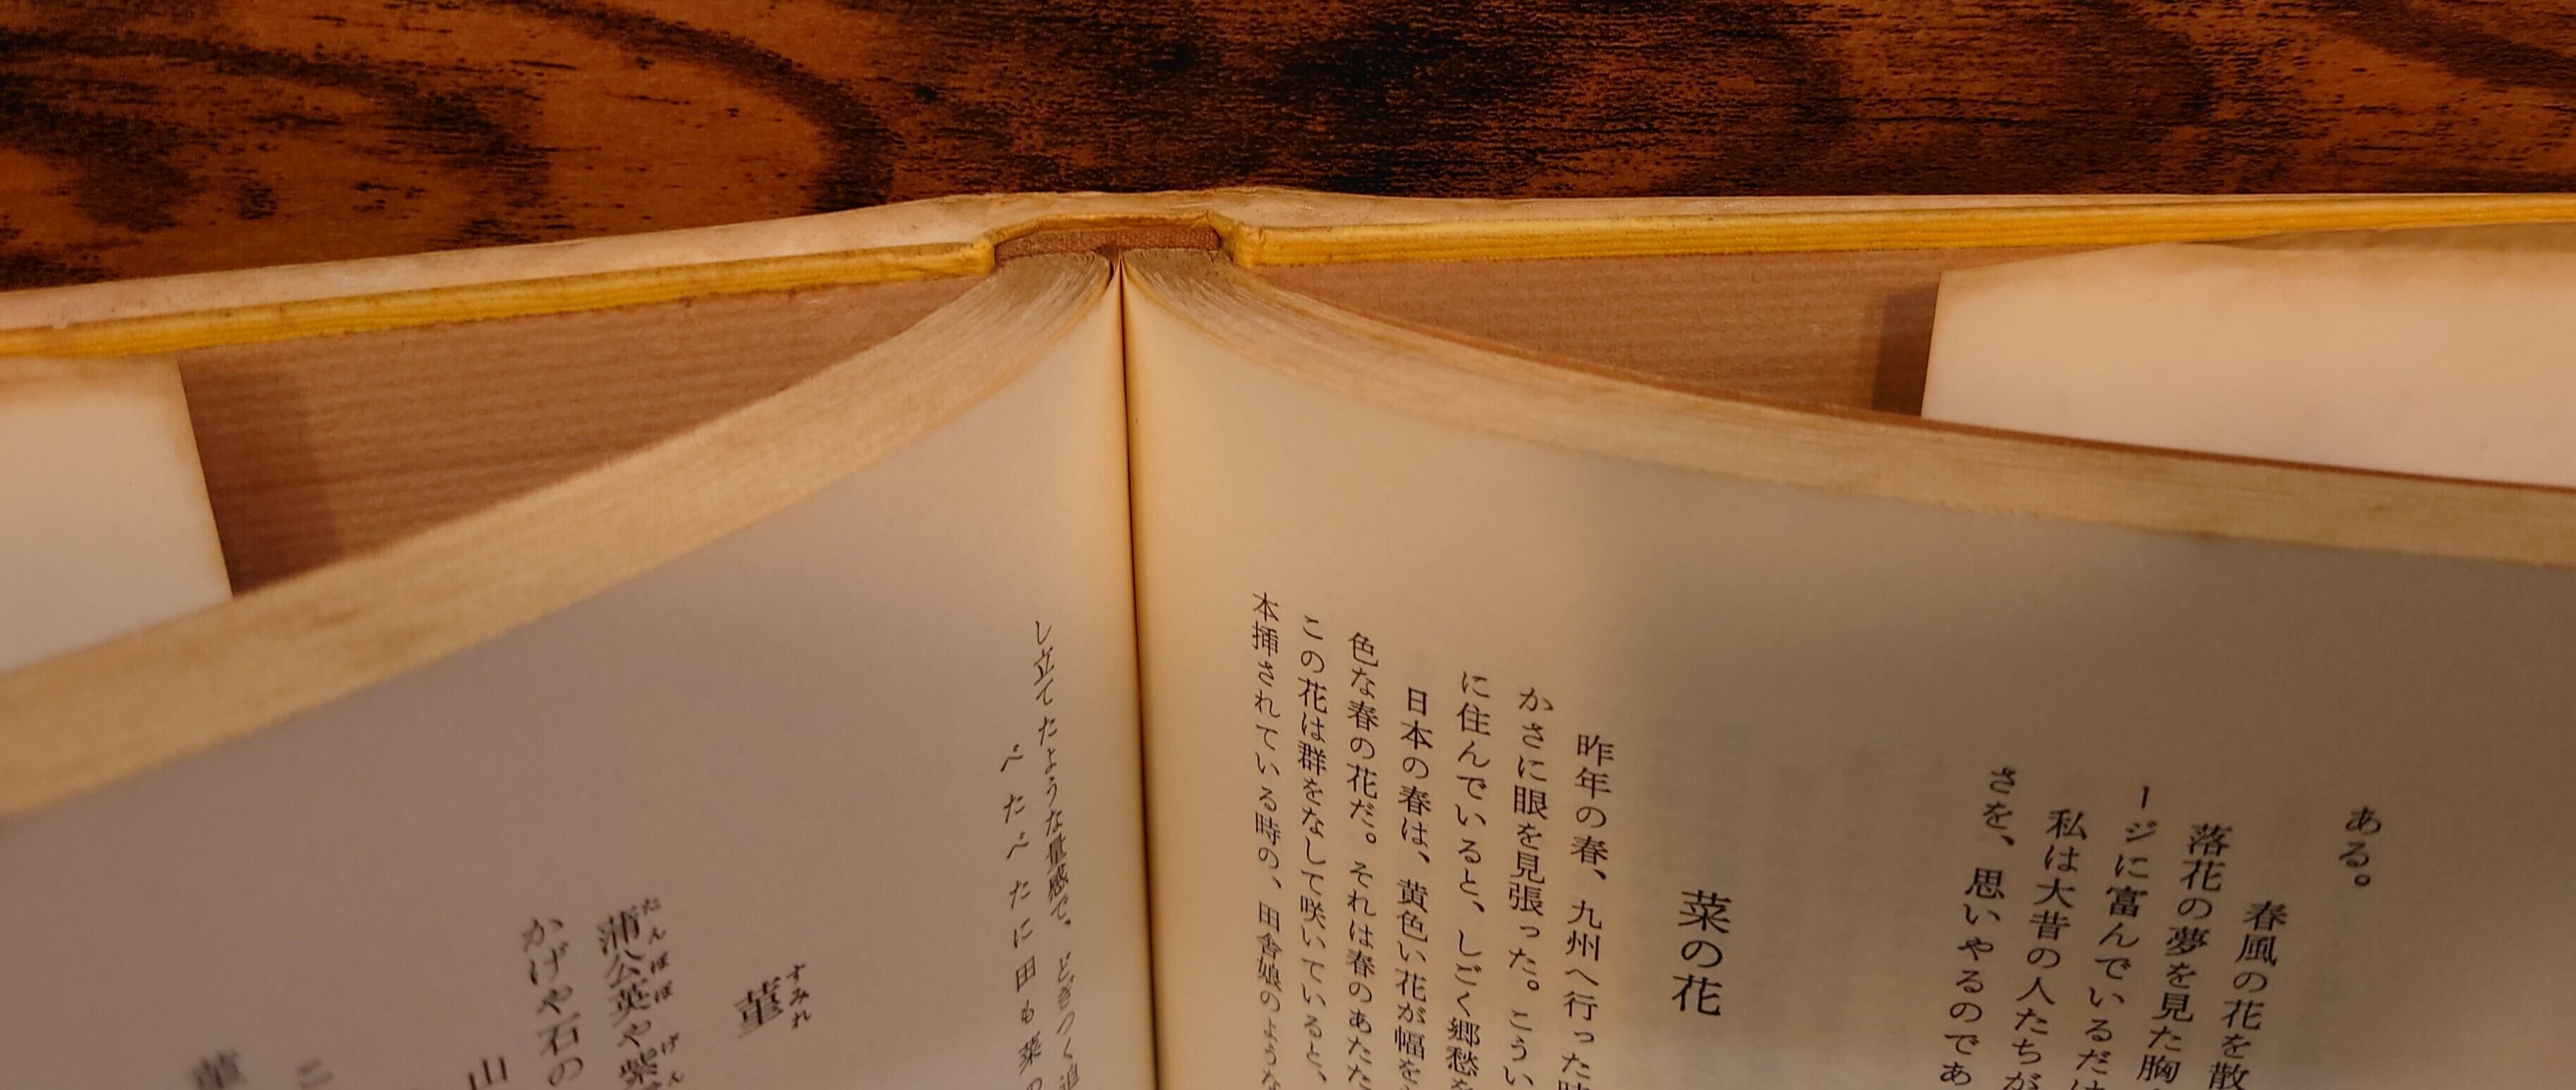 ある。
春風の花を散
落花の夢を見た胸
ージに富んでいるだけ
私は大昔の人たちが
さを、思いやるのであ
菜の花
昨年の春、九州へ行った時
かさに眼を見張った。こうい
に住んでいると、しごく郷愁を
日本の春は、黄色い花が幅を
色な春の花だ。それは春のあたた
この花は群をなして咲いていると、
本挿されている時の、田舎娘のような
し立てたような量感で、どぎつく迫
べたべたに田も菜の
菫
すみれ
蒲公英や紫
たんぽぽ げん
かげや石の
山
こ
菫